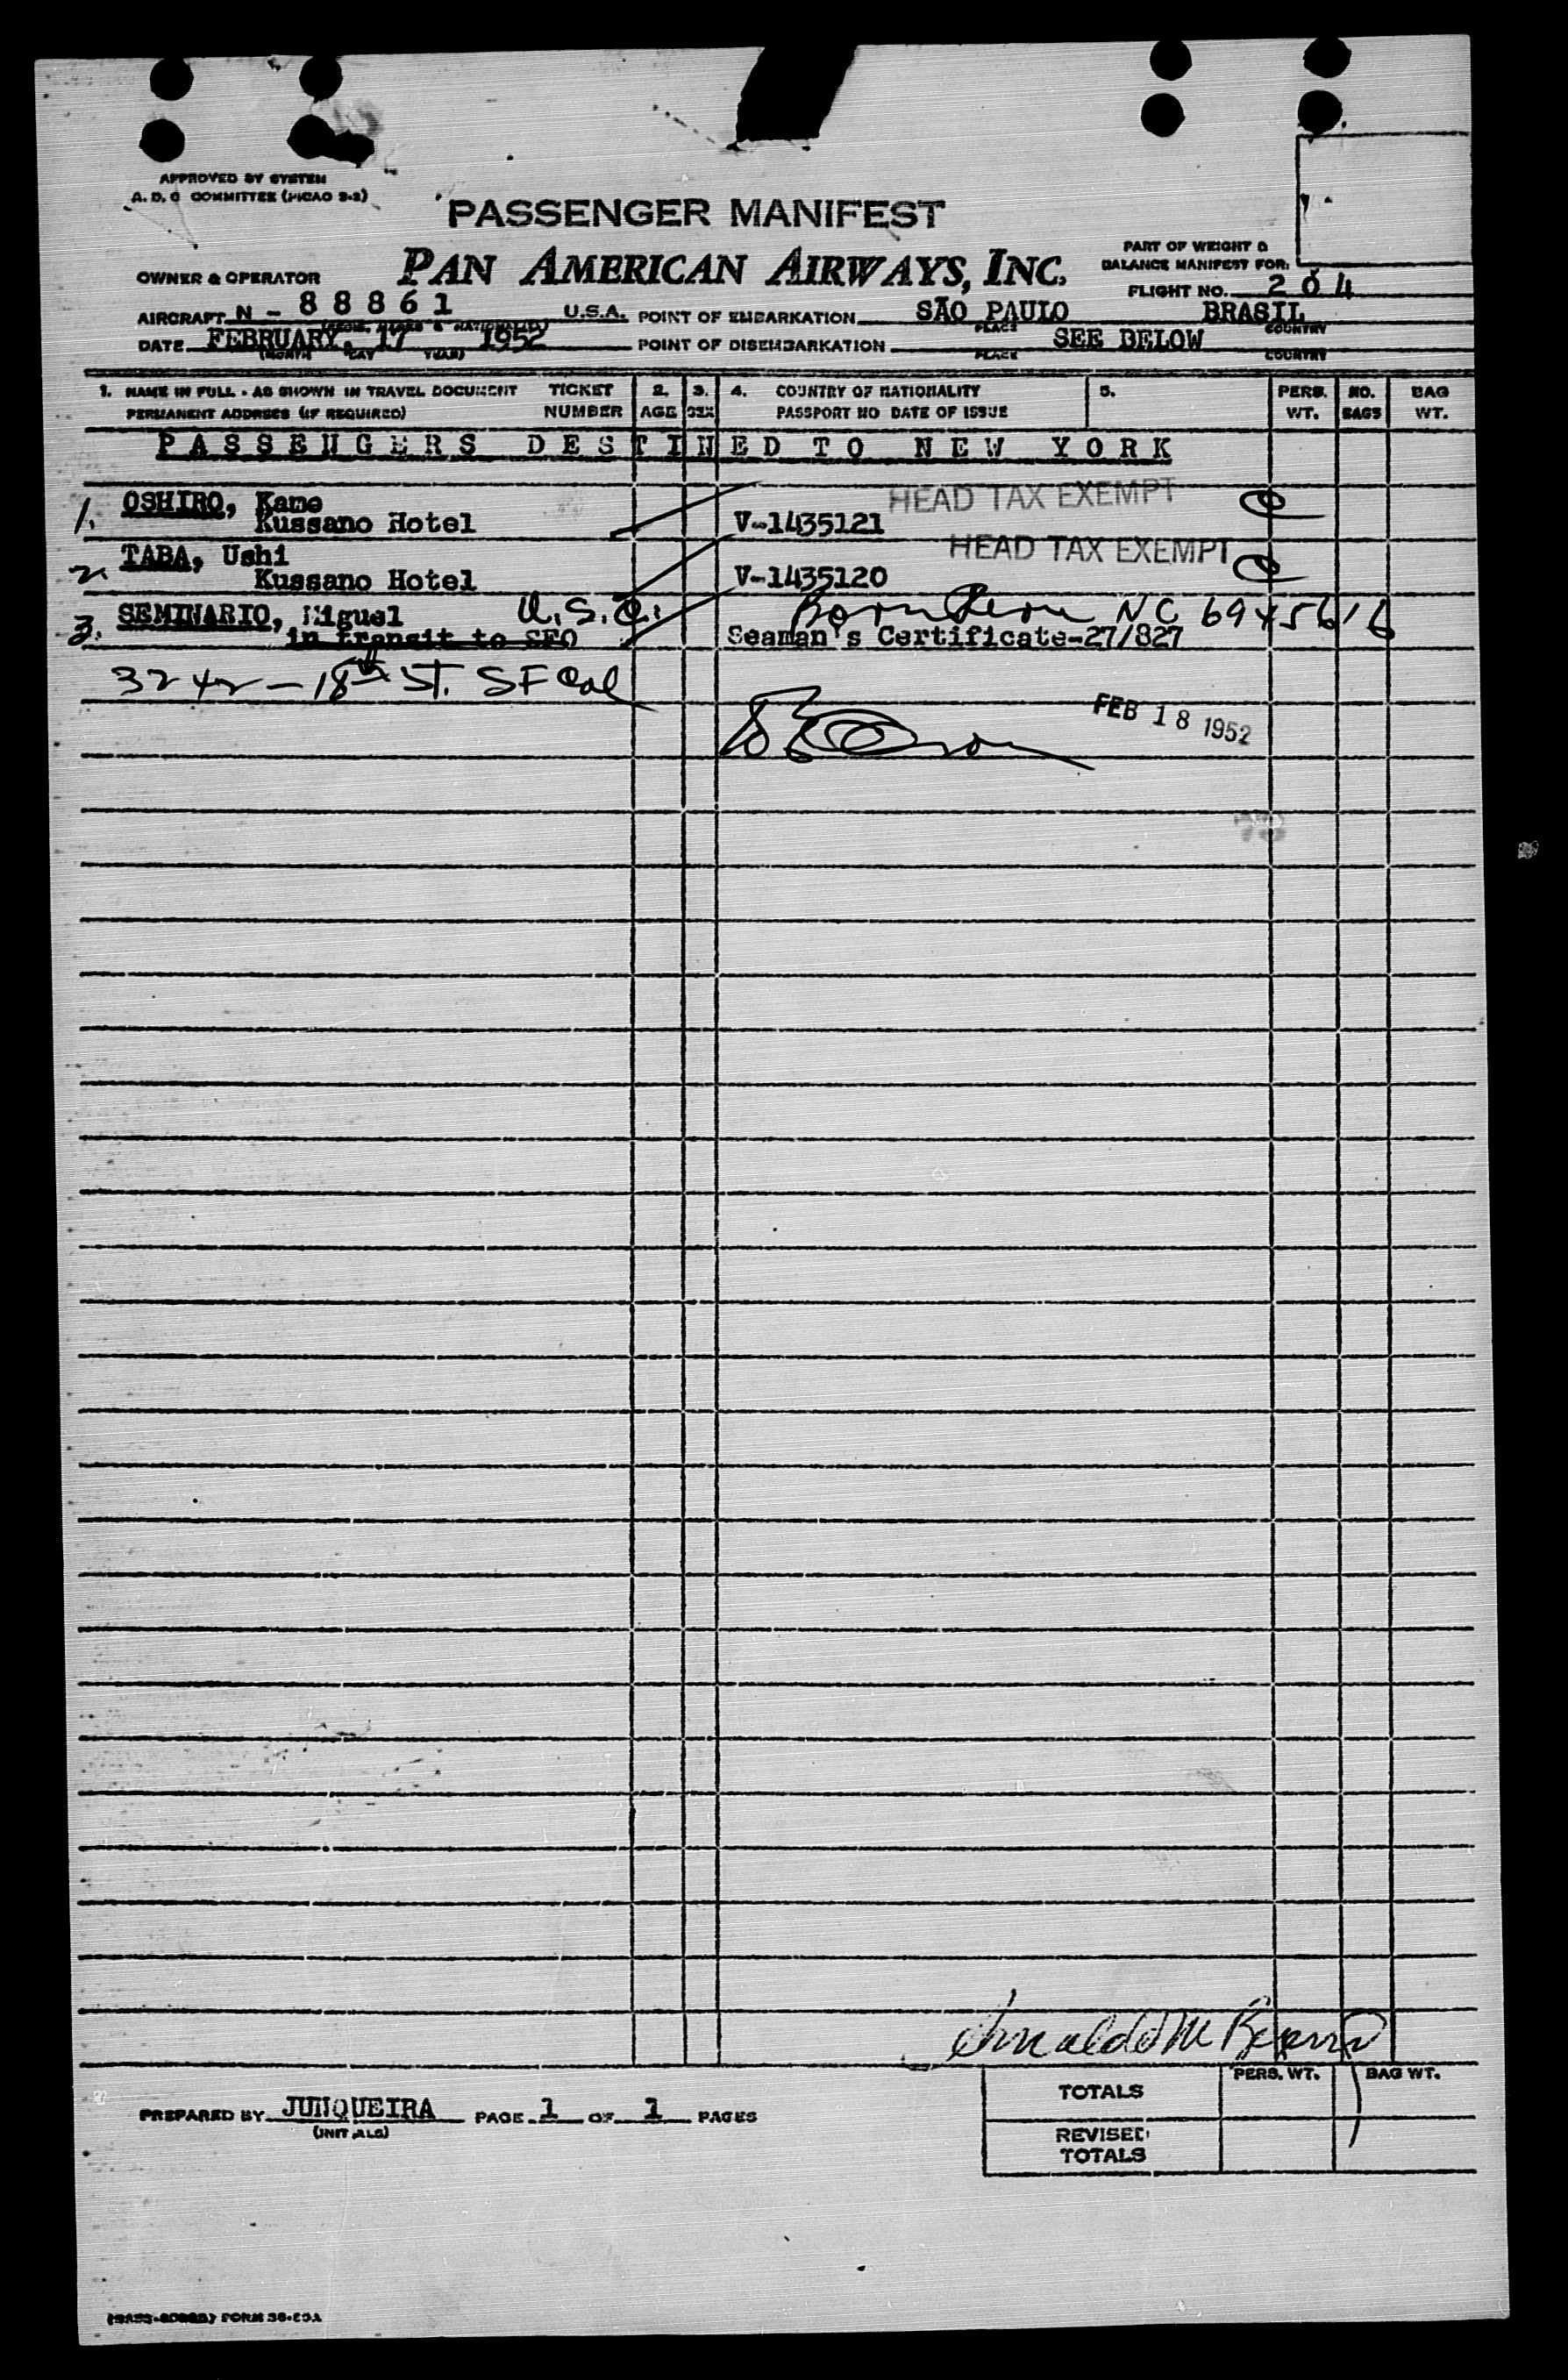 APPROVED BY SYSTEM
A. D. C COMMITTEE (PICAO 2-2)
PASSENGER MANIFEST
OWNER & OPERATOR PAN AMERICAN AIRWAYS, INC.
PART OF WEIGHT &
BALANCE MANIFEST FOR:
FLIGHT NO. 204
AIRCRAFT N - 88861 U.S.A. POINT OF EMBARKATION SÃO PAULO BRASIL
PLACE COUNTRY
DATE FEBRUARY, 17 1952 POINT OF DISEMBARKATION SEE BELOW
(MONTH DAY YEAR) PLACE COUNTRY
1. NAME IN FULL - AS SHOWN IN TRAVEL DOCUMENT TICKET 2. 3. 4. COUNTRY OF NATIONALITY 5. PERS. NO. BAG
PERMANENT ADDRESS (IF REQUIRED) NUMBER AGE SEX PASSPORT NO DATE OF ISSUE WT. BAGS WT.
PASSENGERS DESTINED TO NEW YORK
1. OSHIRO, Kame HEAD TAX EXEMPT
Kussano Hotel V-1435121
2. TABA, Ushi HEAD TAX EXEMPT
Kussano Hotel V-1435120
3. SEMINARIO, Miguel U.S.C. Born NC 6945616
in transit to SFO Seaman's Certificate-27/827
3242 - 18th ST. SF Cal
FEB 18 1952
TOTALS PERS. WT. BAG WT.
PREPARED BY JUNQUEIRA PAGE 1 OF 1 PAGES
(INITIALS)
REVISED
TOTALS